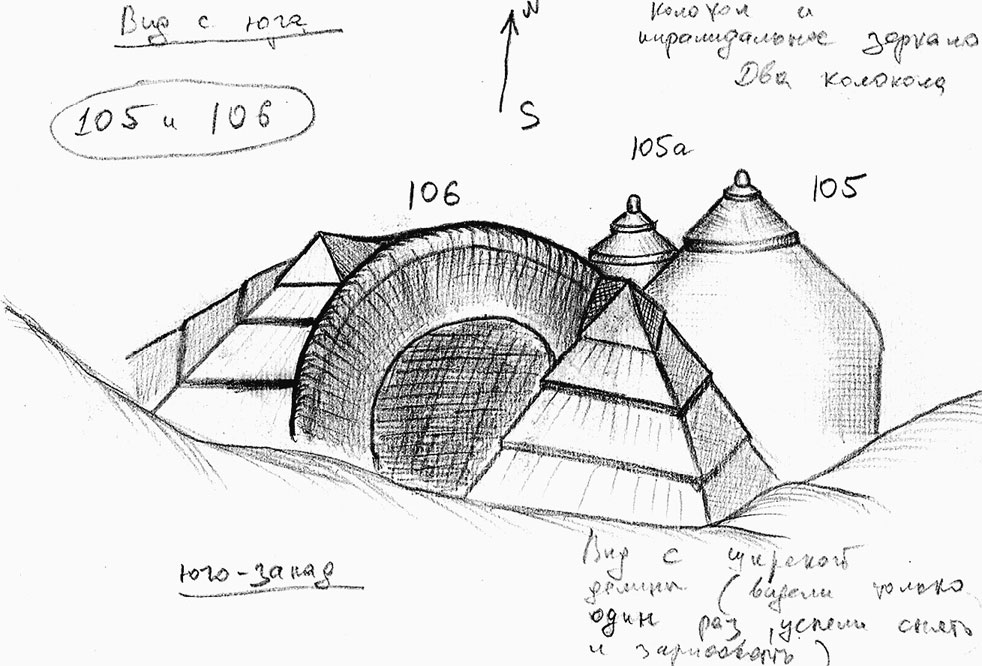 Вид с юга
N
S
Колокол и
пирамидальное зеркало
Два колокола
105 и 106
105а
105
106
юго-запад
Вид с
долины (видели только
один раз, успели снять
и зарисовать)